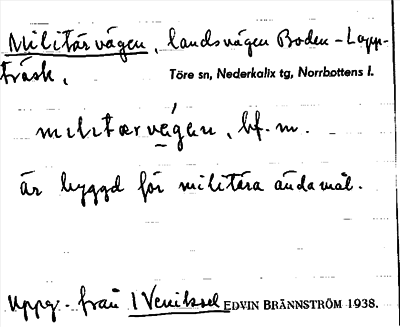 Militärvägen, landsvägen Boden - Lapp-
träsk.
Töre sn, Nederkalix tg, Norrbottens l.
militærvégen, bf. m.
är byggd för militära ändamål.
Uppg. från
EDVIN BRÄNNSTRÖM 1938.